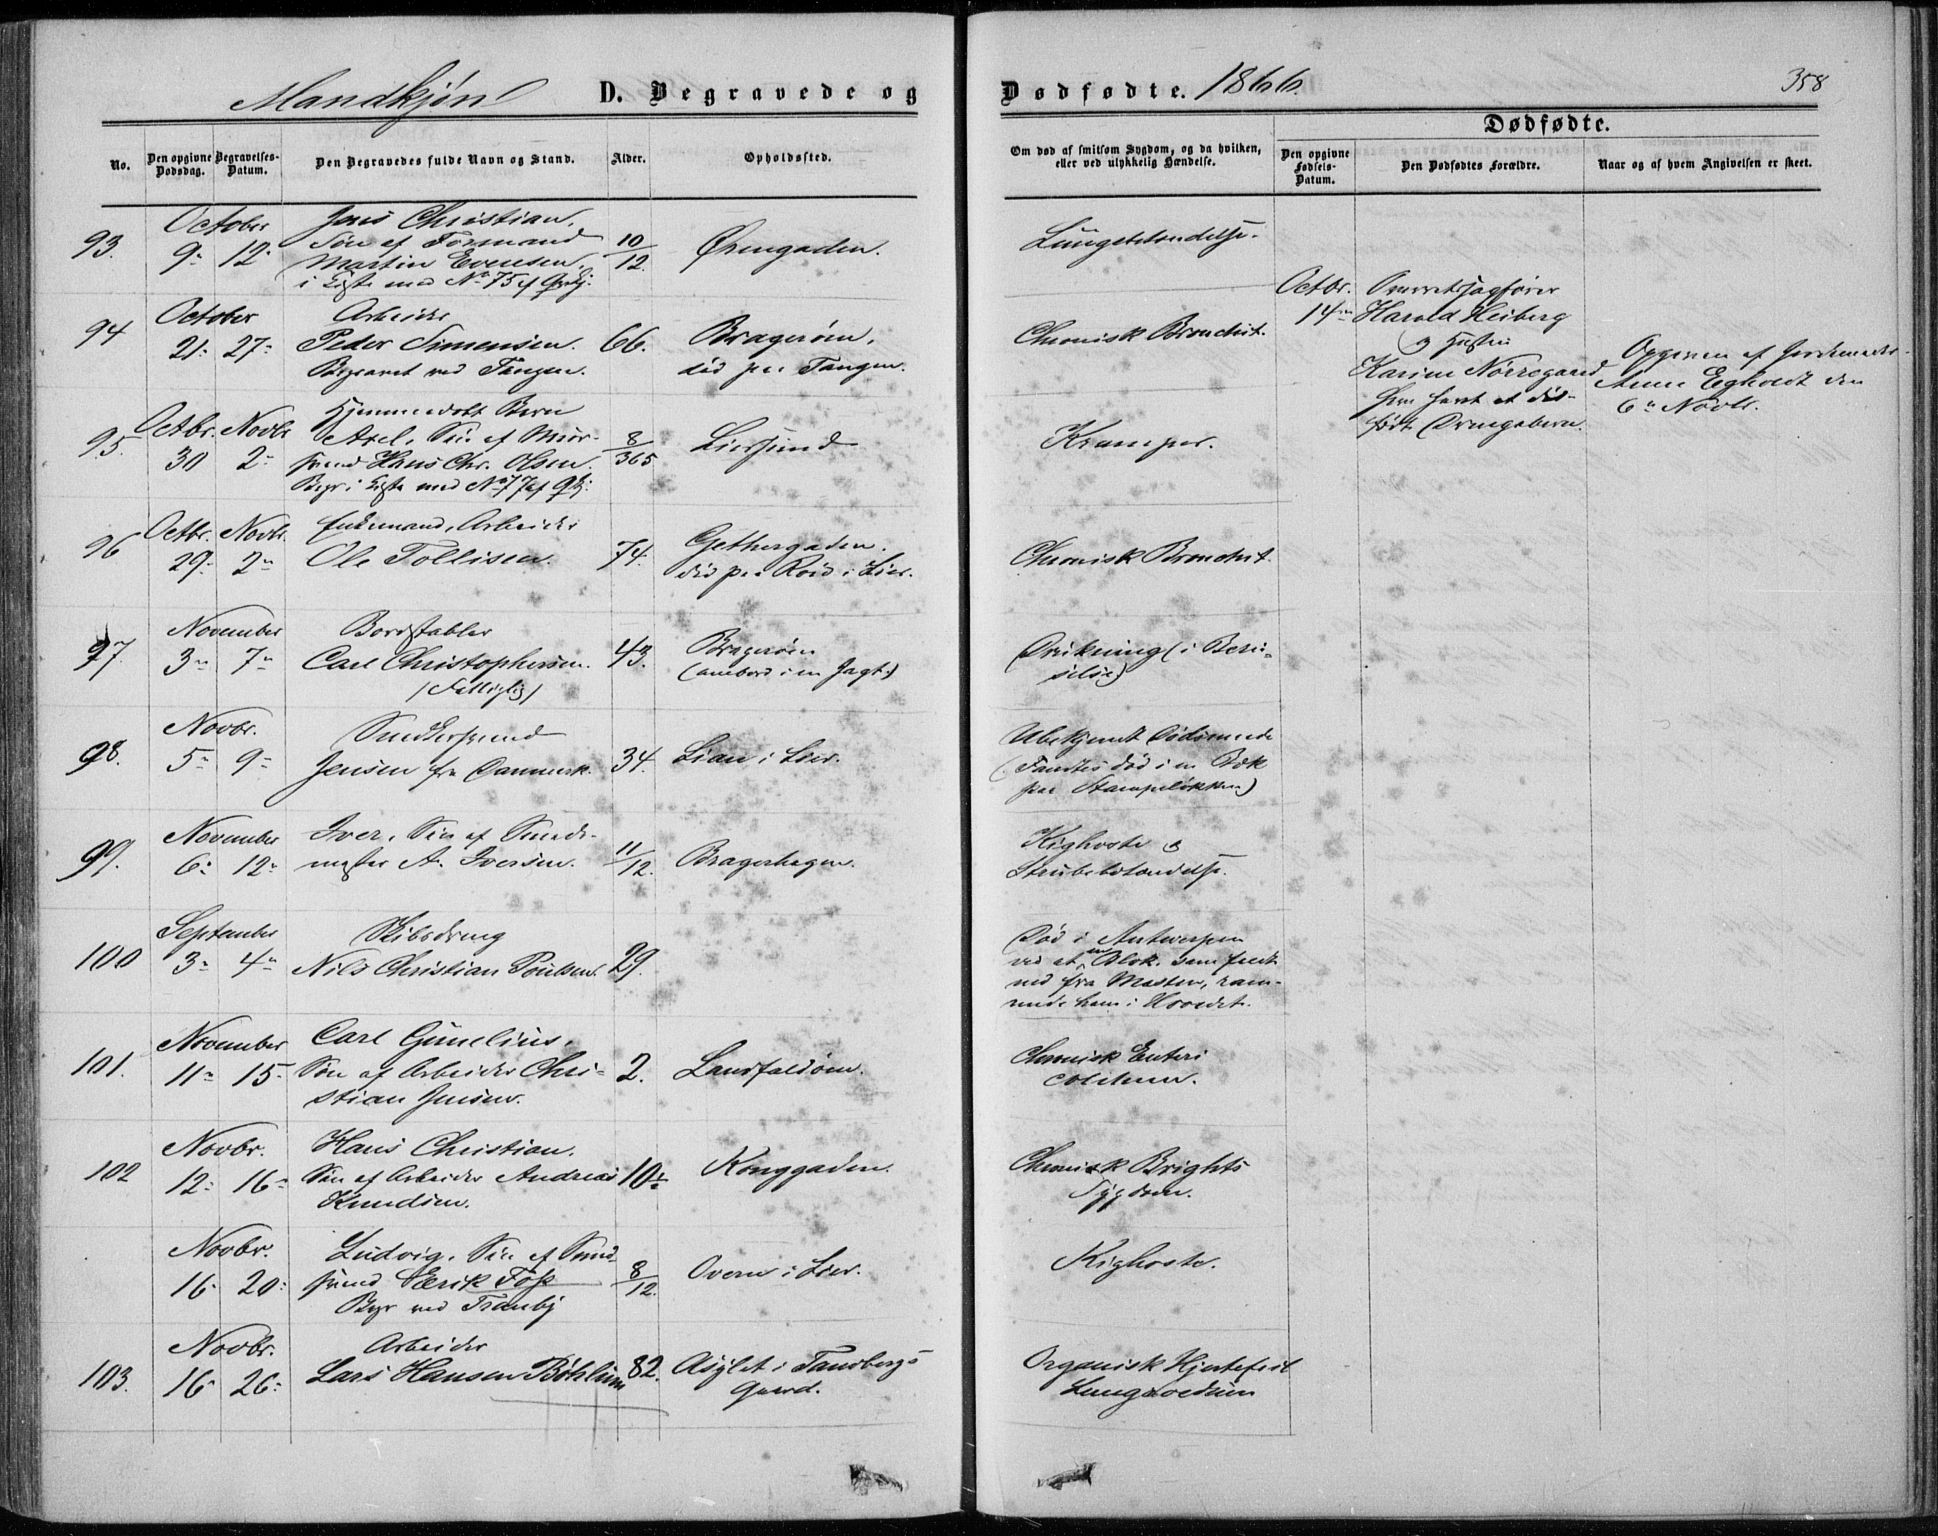 Mandkjøn D. Begravede og
Dødfødte. 1866. 358
No.
Den opgivne Dødsdag.
Begravelses-Datum.
Den Begravedes fulde Navn og Stand.
Alder.
Opholdssted.
Om død af smitsom Sygdom, og da hvilken,
eller ved ulykkelig Hændelse.
Dødfødte.
Den opgivne Fødsels-Datum.
Den Dødfødtes Forældre.
Naar og af hvem Angivelsen er skeet.
October Jens Christian,
93. 9 12 Søn af Formand 10/12 Ørengaden. Lungebetændelse.
Martin Evensen,
i Kiste med No 75 af Qvkj.
October Arbeider
94 21 27 Peder Simensen. 66. Bragerøen, Chronisk Bronchit.
Begravet ved Tangen. død paa Tangen.
Octbr. Overretssagfører
14 Harald Heiberg
og Hustru
Karine Nørregaard
som havt et død-
født Drengebarn.
Opgiven af Jordemoder
Anne Egholdt den
6 Novbr.
Octbr. Novbr. Hjemmedøbt Barn
95. 30 2 Axel, Søn af Mur- 8/365 Liersund Kramper.
svend Hans Chr. Olsen.
Begr. i Kiste med No 77 af Qkj.
Octbr. Novbr. Enkemand, Arbeider
96 29 2 Ole Tollisen. 74. Gethergaden. Chronisk Bronchit.
død paa Röid i Lier.
November Bordstabler
97. 3 7 Carl Christophersen. 43. Bragerøen Drukning (i Beru-
(Fattiglig) (ombord i en Jagt) selse)
Novbr. Snedkersvend
98. 5 9 Jensen fra Danmark. 34. Lian i Lier. Ubekjendt Dødsmaade
(Fandtes død i en Bæk
paa Stampeløkken)
November Iver, Søn af Smed-
99. 6 12 mester A. Iversen. 11/12. Bragerhagen. Kighoste og
Strubebetændelse.
September Skibsdreng
100 3 4 Nils Christian Poulsen. 29. Død i Antwerpen
ved at en Blok, som faldt
ned fra Masten, ram-
mede ham i Hovedet.
November Carl Gunelius,
101. 11 15 Søn af Arbeider Chri- 2. Landfaldøen. Chronisk Entero
stian Jensen. colitum.
Novbr. Hans Christian,
102 12 16 Søn af Arbeider Andreas 10 Konggaden. Chronisk Brights
Knudsen. Sygdom.
Novbr. Ludvig, Søn af Smed-
16 20 svend Erik Foss 8/12. Overn i Lier. Kighoste.
Begr ved Tranby
Novbr. Arbeider
103. 16 26 Lars Hansen Bøhlum 82. Asylet i Tandbergs Organisk Hjertefeil
Gaard. Lungeoedem